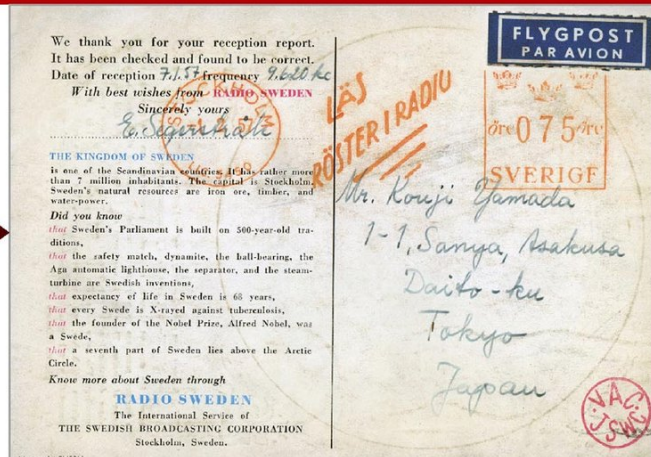 We thank you for your reception report.
It has been checked and found to be correct.
Date of reception 7.1.57 frequency 9.620 kc
With best wishes from RADIO SWEDEN
Sincerely yours
THE KINGDOM OF SWEDEN
is one of the Scandinavian countries. It has rather more
than 7 million inhabitants. The capital is Stockholm.
Sweden's natural resources are iron ore, timber, and
water-power.
Did you know
that Sweden's Parliament is built on 500-year-old tra-
ditions,
that the safety match, dynamite, the ball-bearing, the
Aga automatic lighthouse, the separator, and the steam-
turbine are Swedish inventions,
that expectancy of life in Sweden is 68 years,
that every Swede is X-rayed against tuberculosis,
that the founder of the Nobel Prize, Alfred Nobel, was
a Swede,
that a seventh part of Sweden lies above the Arctic
Circle.
Know more about Sweden through
RADIO SWEDEN
The International Service of
THE SWEDISH BROADCASTING CORPORATION
Stockholm, Sweden.
STOCKHOLM
LÄS
RÖSTER I RADIO
FLYGPOST
PAR AVION
öre 075 öre
SVERIGE
Mr. Kouji Yamada
1-1, Sanya, Asakusa
Daito-ku
Tokyo
Japan
VAC
JSWC